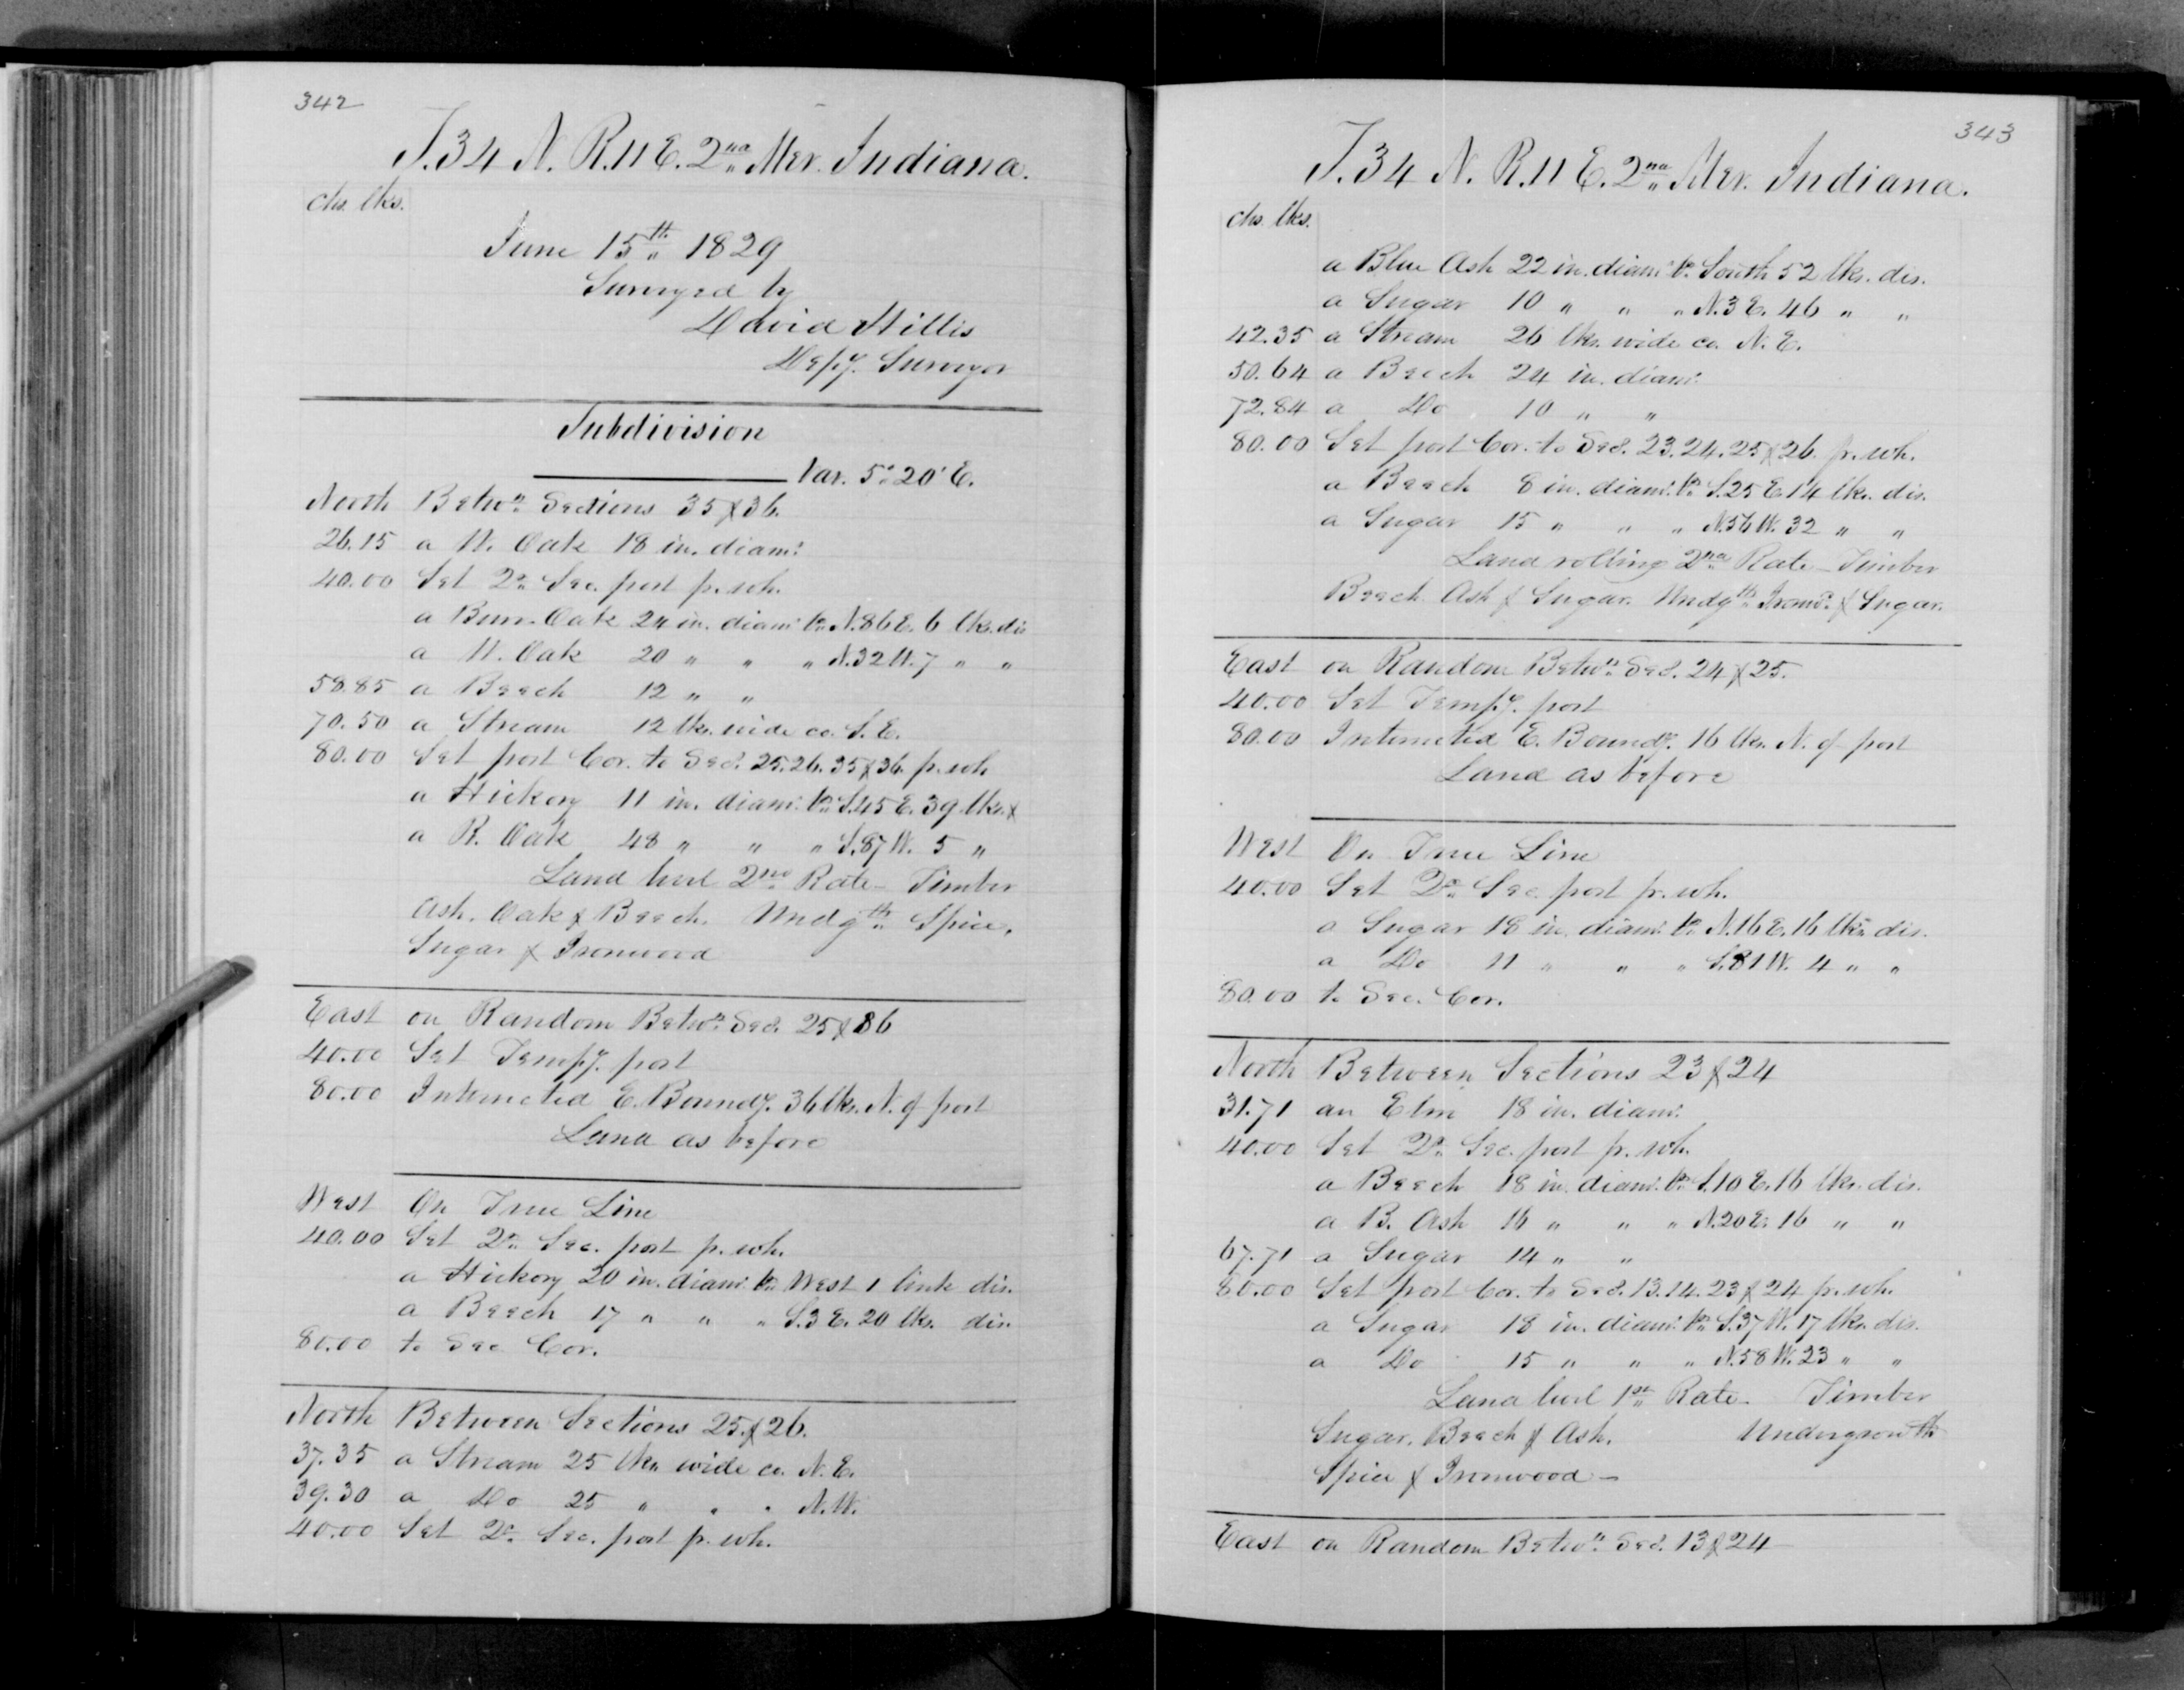 342
T.34 N. R.11 E. 2nd Mer. Indiana.
chs. lks.
June 15th 1829
Surveyed by
David Hillis
Depy. Surveyor
Subdivision
Var. 5° 20' E.
North Betwn Sections 35 & 36.
26.15 a W. Oak 18 in. diamr
40.00 Set Qr Sec. post fr. wh.
a Burr Oak 24 in. diamr brs N.86 E. 6 lks. dis
a W. Oak 20 " " " N.32 W. 7 " "
58.85 a Beech 12 " "
70.50 a Stream 12 lks. wide co. S.E.
80.00 Set post Cor. to Secs. 25.26.35 & 36. fr. wh
a Hickory 11 in. diamr brs S.45 E. 39 lks. &
a R. Oak 48 " " " S.87 W. 5 "
Land level 2nd Rate – Timber
Ash. Oak & Beech. Undgth Spice,
Sugar & Ironwood
East on Random Betwn Secs. 25 & 36
40.00 Set Tempy. post
80.00 Intersected E. Boundy. 36 lks. N. of post
Land as before
West On True Line
40.00 Set Qr Sec. post fr. wh.
a Hickory 20 in. diamr brs West 1 link dis.
a Beech 17 " " " S.3 E. 20 lks. dis.
80.00 to Sec Cor.
North Between Sections 25. & 26.
37.35 a Stream 25 lks wide co. N.E.
39.30 a Do 25 " " " N.W.
40.00 Set Qr Sec. post fr. wh.
343
T.34 N. R.11 E. 2nd Mer. Indiana.
chs. lks.
a Blue Ash 22 in. diamr brs South 52 lks. dis.
a Sugar 10 " " " N.3 E. 46 " "
42.35 a Stream 26 lks. wide co. N.E.
50.64 a Beech 24 in. diamr
72.84 a Do 10 " "
80.00 Set post Cor. to Secs. 23.24.25 & 26. fr. wh.
a Beech 8 in. diamr brs S.25 E. 14 lks. dis.
a Sugar 15 " " " N.56 W. 32 " "
Land rolling 2nd Rate – Timber
Beech Ash & Sugar. Undgth Ironwd & Sugar.
East on Random Betwn Secs. 24 & 25.
40.00 Set Tempy. post
80.00 Intersected E. Boundy. 16 lks. N. of post
Land as before
West On True Line
40.00 Set Qr Sec. post fr. wh.
a Sugar 18 in. diamr brs N.16 E. 16 lks dis.
a Do 11 " " " S.81 W. 4 " "
80.00 to Sec. Cor.
North Between Sections 23 & 24
31.71 an Elm 18 in. diamr
40.00 Set Qr Sec. post fr. wh.
a Beech 18 in. diamr brs S.10 E. 16 lks. dis.
a B. Ash 16 " " " N.20 E. 16 " "
67.71 a Sugar 14 " "
80.00 Set post Cor. to Secs. 13.14.23 & 24 fr. wh.
a Sugar 18 in. diamr brs S.37 W. 17 lks. dis.
a Do 15 " " " N.58 W. 23 " "
Land level 1st Rate – Timber
Sugar, Beech & Ash. Undergrowth
Spice & Ironwood –
East on Random Betwn Secs. 13 & 24